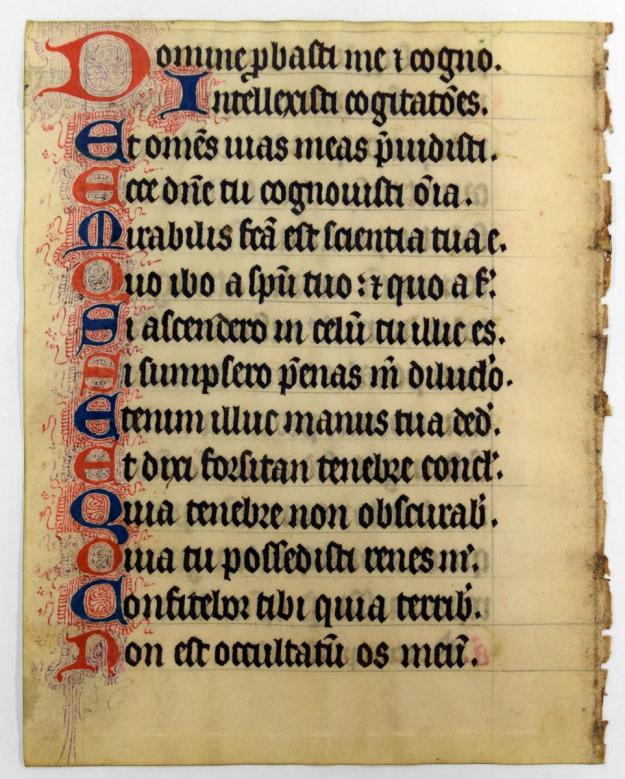 Domine ꝓbasti me ⁊ cogno.
Intellexisti cogitatōes.
Et omēs uias meas p̄uidisti.
Ecce dn̄e tu cognouisti oīa.
Mirabilis fcā est scientia tua e.
Quo ibo a spū tuo : ⁊ quo a f᷎.
Si ascendero in celū tu illic es.
Si sumpsero p̄enas m̄ diluclo.
Etenim illuc manus tua ded᷎.
Et dixi forsitan tenebre concl᷎.
Quia tenebre non obscurab᷎.
Quia tu possedisti renes m᷎.
Confitebor tibi quia terrib᷎.
Non est occultatū os meū.